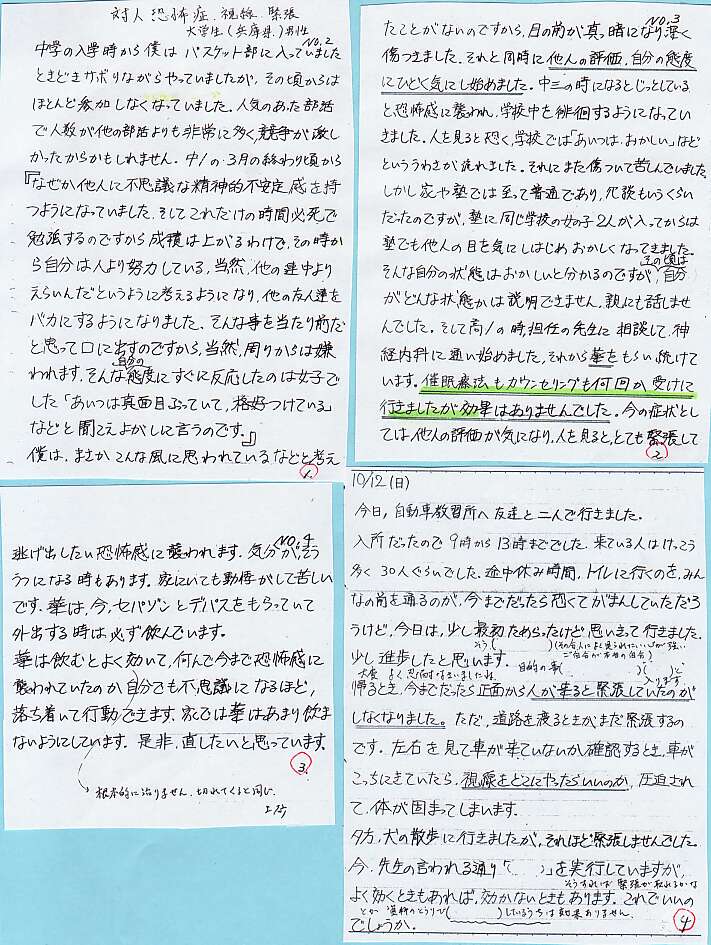 対人恐怖症、視線、緊張
大学生(兵庫県)男性
NO.2
中学の入学時から僕はバスケット部に入っていました
ときどきサボりながらやっていましたが、その頃からは
ほとんど参加しなくなっていました。人気のあった部活
で人数が他の部活よりも非常に多く、競争が激し
かったからかもしれません。中1の3月の終わり頃から
『なぜか他人に不思議な精神的不安定感を持
つようになっていました。そしてこれだけの時間必死で
勉強するのですから成績は上がるわけで、その時か
ら自分は人より努力している、当然、他の連中より
えらいんだというように考えるようになり、他の友人達を
バカにするようになりました。そんな事を当たり前だ
と思って口に出すのですから、当然、周りからは嫌
われます。そんな自分の態度にすぐに反応したのは女子で
した「あいつは真面目ぶっていて、格好つけている」
などと聞こえよがしに言うのです。』
僕は、まさかこんな風に思われているなどと考え
1.
NO.3
たことがないのですから、目の前が真暗になり深く
傷つきました。それと同時に他人の評価、自分の態度
にひどく気にし始めました。中三の時になるとじっとしている
と恐怖感に襲われ、学校中を徘徊するようになってい
きました。人を見ると恐く、学校では「あいつは、おかしい」など
というううわさが流れました。それにまた傷ついて苦しんでいました。
しかし家や塾では至って普通であり、冗談もいうくらい
だったのですが、塾に同じ学校の女の子2人が入ってからは
塾でも他人の目を気にしはじめ、おかしくなってきました。
そんな自分の状態はおかしいと分かるのですが、その頃は自分
がどんな状態かは説明できません。親にも話しませ
んでした。そして高1の時、担任の先生に相談して、神
経内科に通い始めました。それから薬をもらい続けて
います。催眠療法もカウンセリングも何回か受けに
行きましたが効果はありませんでした。今の症状とし
ては、他人の評価が気になり、人を見ると、とても緊張して
2
NO.4
逃げ出したい恐怖感に襲われます。気分が、そう
うつになる時もあります。家にいても動悸がして苦しい
です。薬は、今、セパゾンとデパスをもらっていて
外出する時は必ず飲んでいます。
薬は飲むとよく効いて、何んで今まで恐怖感に
襲われていたのか自分でも不思議になるほど、
落ち着いて行動できます。家では薬はあまり飲ま
ないようにしています。是非、直したいと思っています。
3.
根本的に治りません、切れてくると同じ。
10/12(日)
今日、自動車教習所へ友達と二人で行きました。
入所だったので9時から13時まででした。来ている人はけっこう
多く30人ぐらいでした。途中休み時間、トイレに行くのを、みん
なの前を通るのが、今までだったら恐くてがまんしていただろ
うけど、今日は、少し最初ためらったけど思いきって行きました。
少し進歩したと思います。
帰るとき、今までだったら正面から人が来ると緊張していたのが
しなくなりました。ただ、道路を渡るときがまだ緊張するの
です。左右を見て車が来ていないか確認するとき、車が
こっちにきていたら、視線をどこにやったらいいのか、圧迫され
て、体が固まってしまいます。
夕方、犬の散歩に行きましたが、それほど緊張しませんでした。
今、先生の言われる通り「　　」を実行していますが、
そうすれば緊張が取れるかな
よく効くときもあれば、効かないときもあります。これでいいの
( )しているうちは効果ありません。
でしょうか。
4